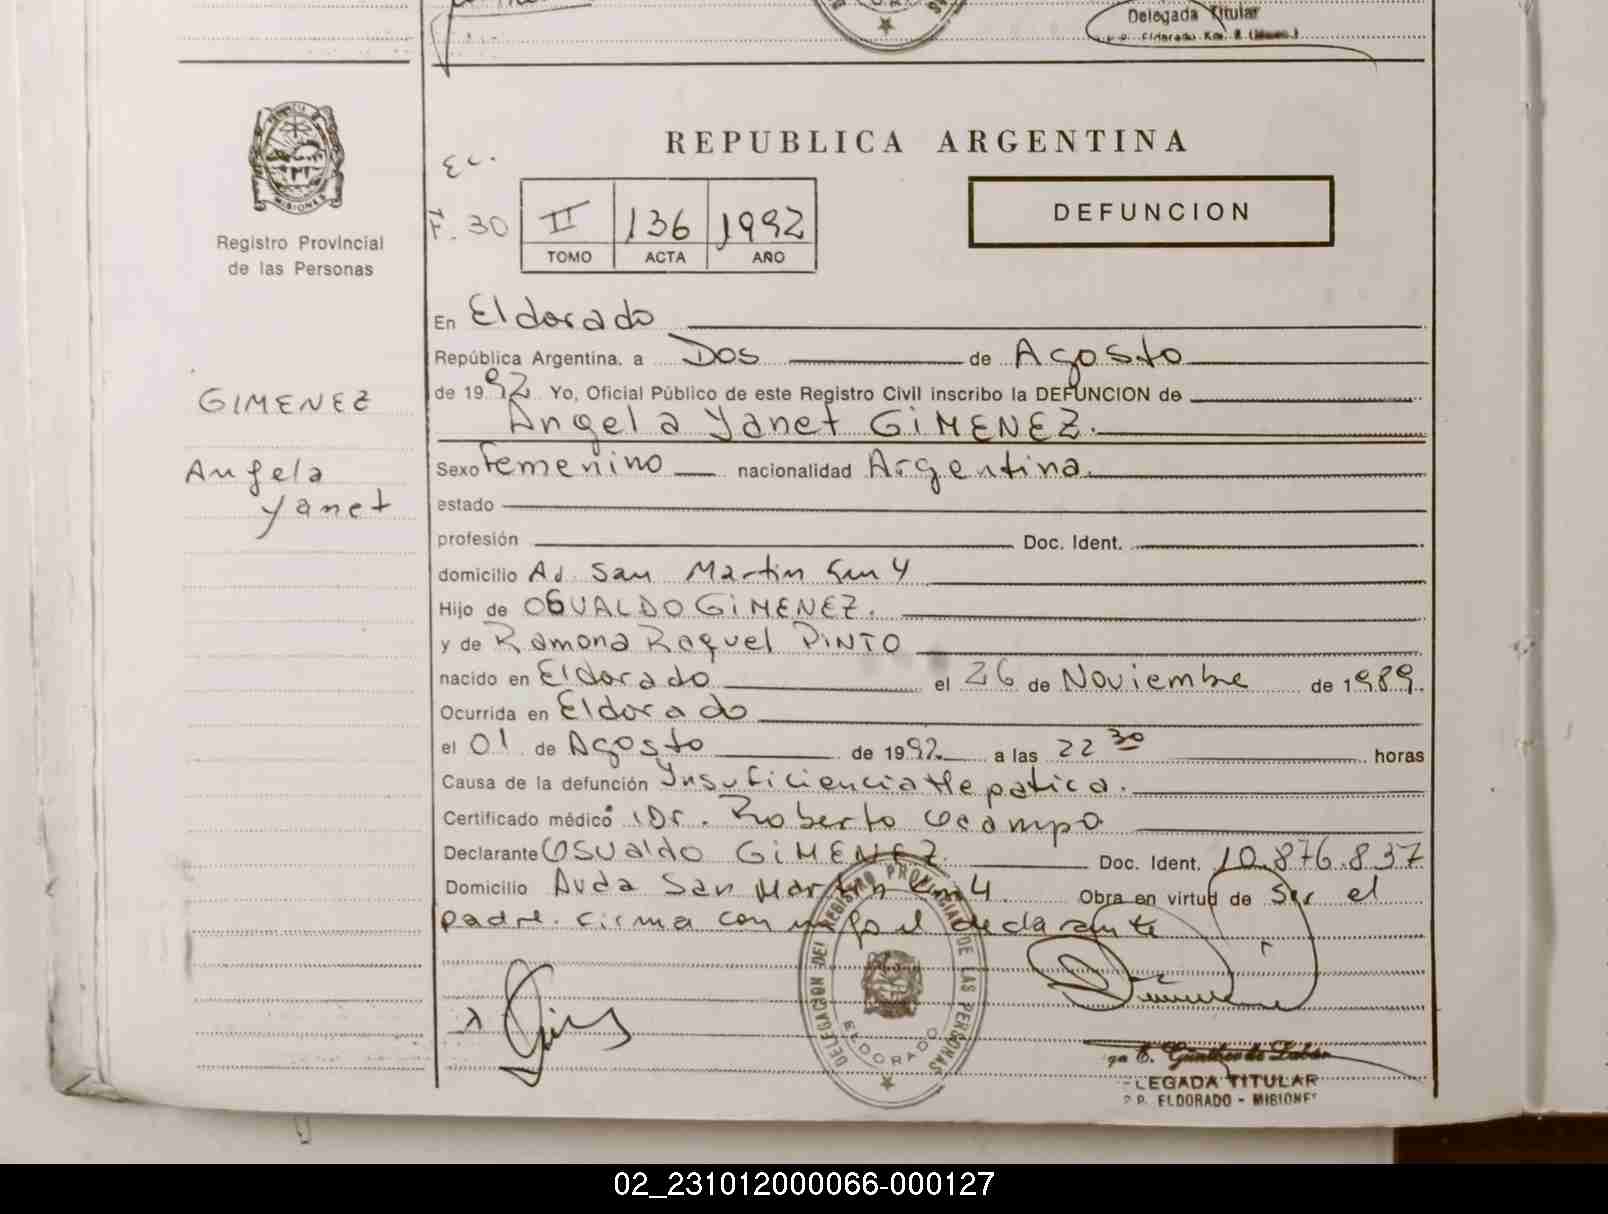 Delegada Titular
Eldorado Km. 
REPUBLICA ARGENTINA
MISIONES
Registro Provincial
de las Personas
Ec.
F. 30
II 136 1992
TOMO ACTA AÑO
DEFUNCION
GIMENEZ
Angela
Yanet
En Eldorado
República Argentina. a Dos de Agosto
de 1992 Yo, Oficial Público de este Registro Civil inscribo la DEFUNCION de
Angela Yanet GiMENEZ.
Sexo Femenino nacionalidad Argentina.
estado
profesión Doc. Ident.
domicilio Av San Martin Km 4
Hijo de OSVALDO GiMENEZ.
y de Ramona Raquel PiNTO
nacido en Eldorado el 26 de Noviembre de 1989.
Ocurrida en Eldorado
el 01 de Agosto de 1992 a las 22 30 horas
Causa de la defunción Insuficiencia Hepatica.
Certificado médico Dr. Roberto Ocampo
Declarante OSValdo GiMENEZ Doc. Ident. 10.876.837
Domicilio Avda San Martin Km 4. Obra en virtud de Ser el
padre. firma conmigo el declarante
DELEGACION DEL REGISTRO PROVINCIAL DE LAS PERSONAS
ELDORADO
LEGADA TITULAR
P. ELDORADO - MISIONES
02_231012000066-000127